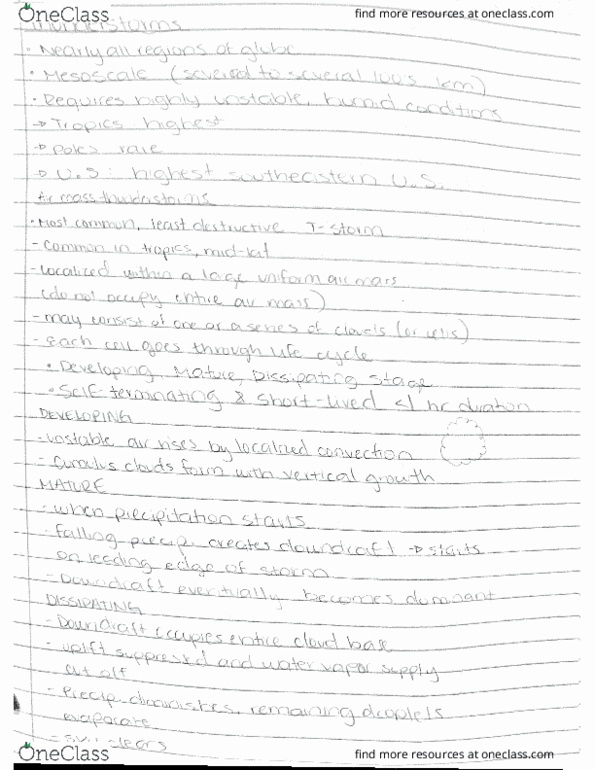 OneClass
find more resources at oneclass.com
Thunderstorms
• Nearly all regions of globe
• Mesoscale (severed to several 100s km)
• Requires highly unstable, humid conditions
→ Tropics highest
→ Poles rare
→ U.S: highest southeastern U.S.
Air mass thunderstorms
• Most common, least destructive T-storm
- common in tropics, mid-lat
- localized within a large uniform air mass
(do not occupy entire air mass)
- may consist of one or a series of clouds (or cells)
- Each cell goes through life cycle
• Developing, Mature, Dissipating stage
• Self-terminating & short-lived <1 hr duration
DEVELOPING
- unstable air rises by localized convection
- Cumulus clouds form with vertical growth
MATURE
- when precipitation starts
- falling precip. creates downdraft → starts
on leading edge of storm
- Downdraft eventually becomes dominant
DISSIPATING
- Downdraft occupies entire cloud base
- uplift suppressed and water vapor supply
cut off
- Precip. diminishes, remaining droplets
evaporate
- sky clears
OneClass
find more resources at oneclass.com